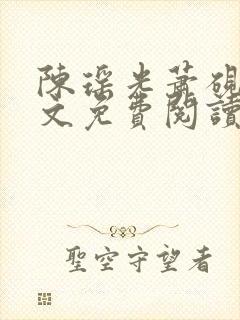 陳瑤光蕭硯
文免費閱讀
聖空守望者